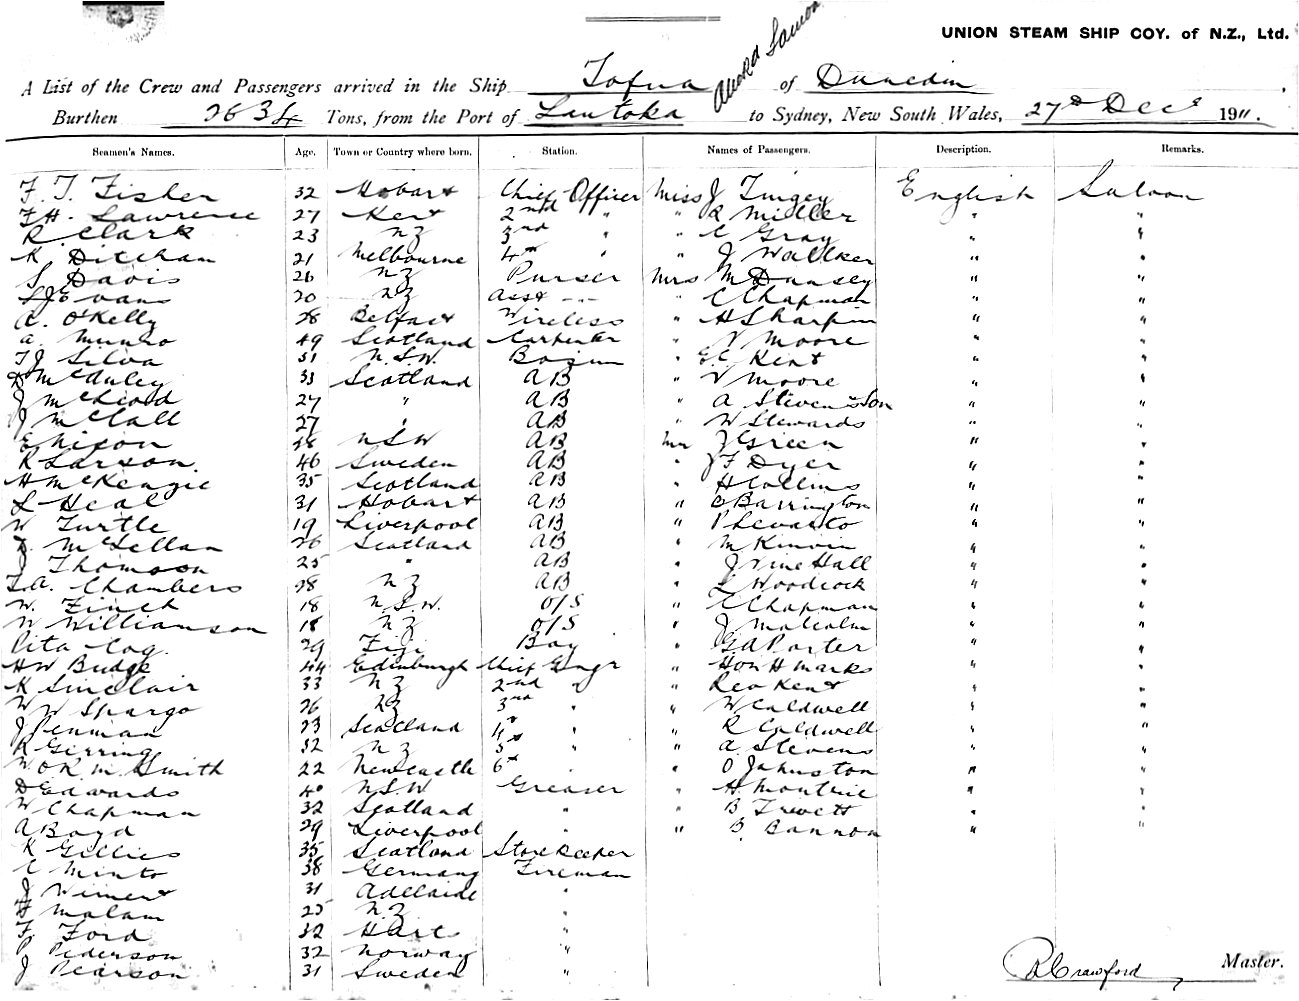 UNION STEAM SHIP COY. of N.Z., Ltd.
A List of the Crew and Passengers arrived in the Ship Tofua of Dunedin
Burthen 2634 Tons, from the Port of Lautoka to Sydney, New South Wales, 27th Decr 1911.
Seamen's Names. Age. Town or Country where born. Station. Names of Passengers. Description. Remarks.
F. T. Fisher 32 Hobart Chief Officer Miss J Tingey English Saloon
F.H. Lawrence 27 Kent 2nd " " R Miller " "
R. Clark 23 NZ 3rd " " C Gray " "
K. Ditcham 21 Melbourne 4th " " J Wallker " "
S Davis 26 NZ Purser Mrs M Dansey " "
S J Evans 20 NZ Asst " C Chapman " "
A. O'Kelly 28 Belfast Wireless " H Sharpin " "
A. Munro 49 Scotland Carpenter " V Moore " "
T J Silva 51 N.S.W. Bosun " E.C. Kent " "
D McAuley 33 Scotland AB " V Moore " "
J McLeod 27 " AB " A Stevens & Son " "
J McCall 27 " AB " W Stewards " "
E Nixon 28 NSW AB Mr J Green " "
R Larson. 46 Sweden AB " J F Dyer " "
H McKenzie 35 Scotland AB " H Collins " "
L Heal 31 Hobart AB " C Barrington " "
W Turtle 19 Liverpool AB " P Levanto " "
D. McLellan 26 Scotland AB " M " "
J Thomson 25 " AB " J Vine Hall " "
T.A. Chambers 28 NZ AB " L Woodcock " "
W. Finch 18 N.S.W. O/S " C Chapman " "
W Williamson 18 NZ O/S " J Malcolm " "
Pita Cog. 29 Fiji Boy " G A Porter " "
HW Budge 44 Edinburgh Chief Engr " Hon H Marks " "
K Sinclair 33 NZ 2nd " " Rev Kent " "
W W Spargo 26 NZ 3rd " " W Caldwell " "
J Penman 23 Scotland 4th " " R Caldwell " "
R Gerring 32 NZ 5 " " A. Stevens " "
W O R. M Smith 22 Newcastle 6th . " O Johnston " "
D Edwards 40 N.S.W Greaser " H. " "
W Chapman 32 Scotland " " B Trevett " "
A Boyd 29 Liverpool " " B. Bannon " "
K Gillies 35 Scotland Storekeeper
C Minto 38 Germany Fireman
J Wiment 31 Adelaide "
H Malam 25 N.Z "
F. Ford 32 "
P Pederson 32 Norway "
J Pearson 31 Sweden "
R Crawford Master.